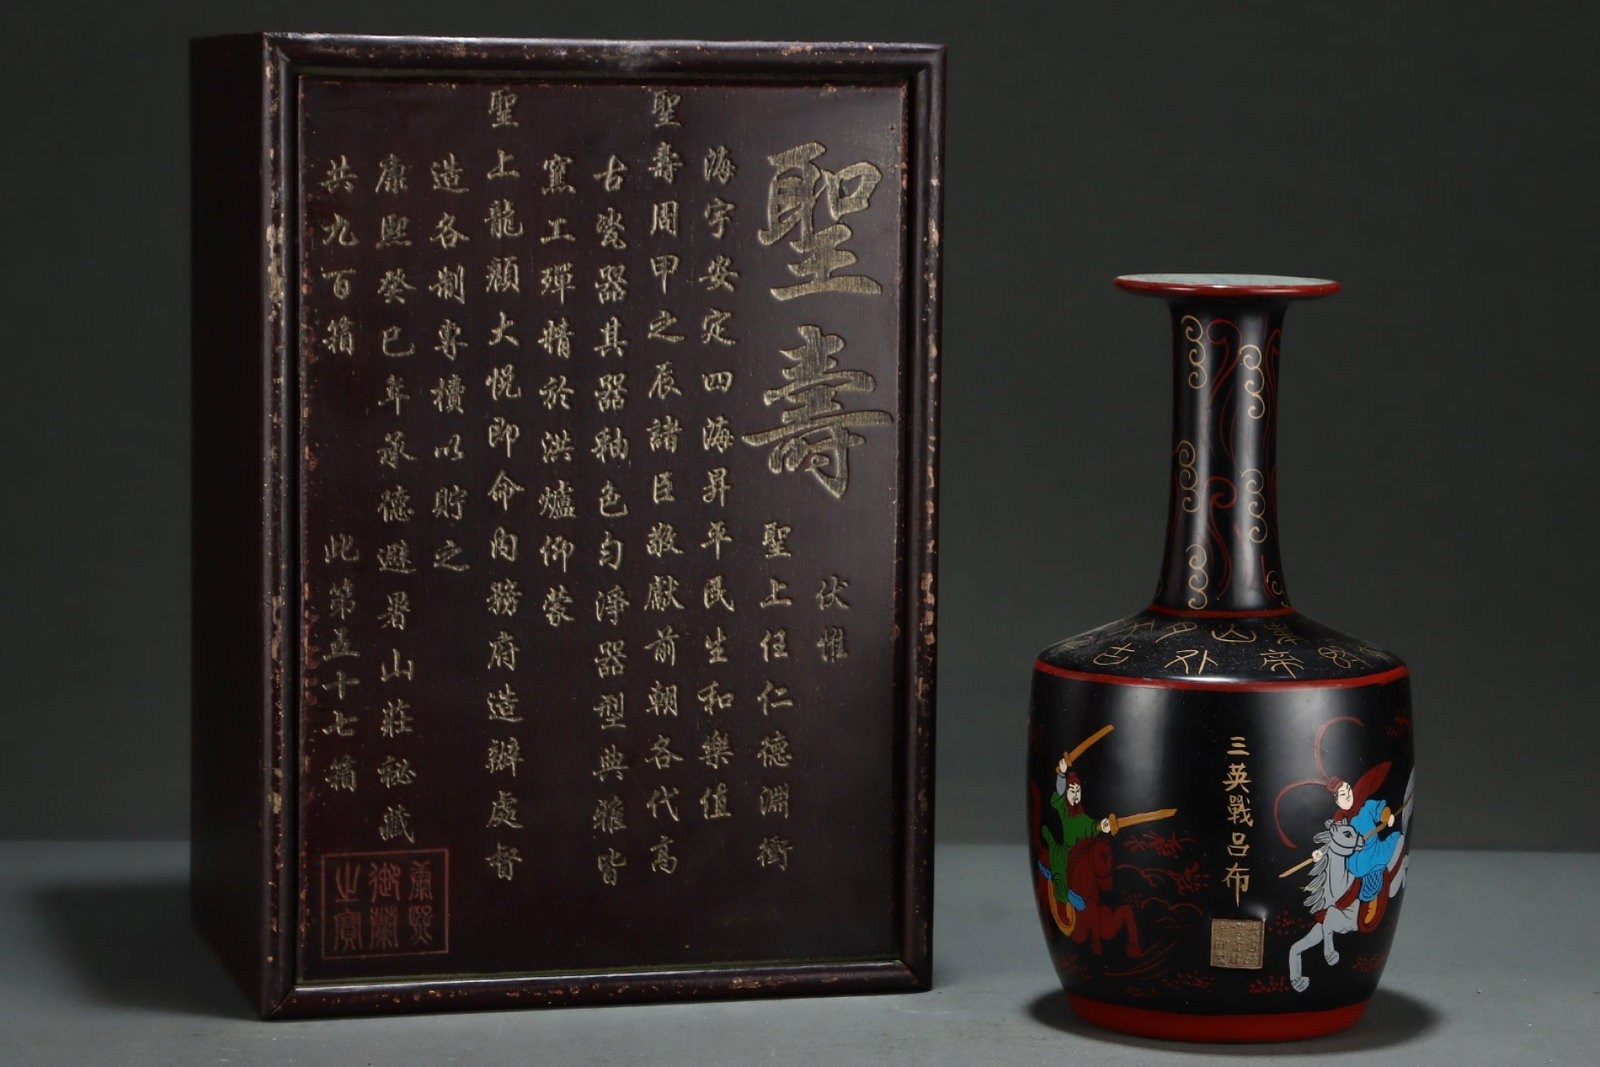 聖壽
伏惟
聖上任仁德淵衝
海宇安定四海昇平民生和樂值
聖壽周甲之辰諸臣敬獻前朝各代高
古瓷器其器釉色勻淨器型典雅皆
窯工殫精於洪爐仰蒙
聖上龍顏大悅即命內務府造辦處督
造各制專櫝以貯之
康熙癸巳年承德避暑山莊秘藏
共九百箱 此第五十七箱
康熙
御蘭
之寶
三英戰呂布